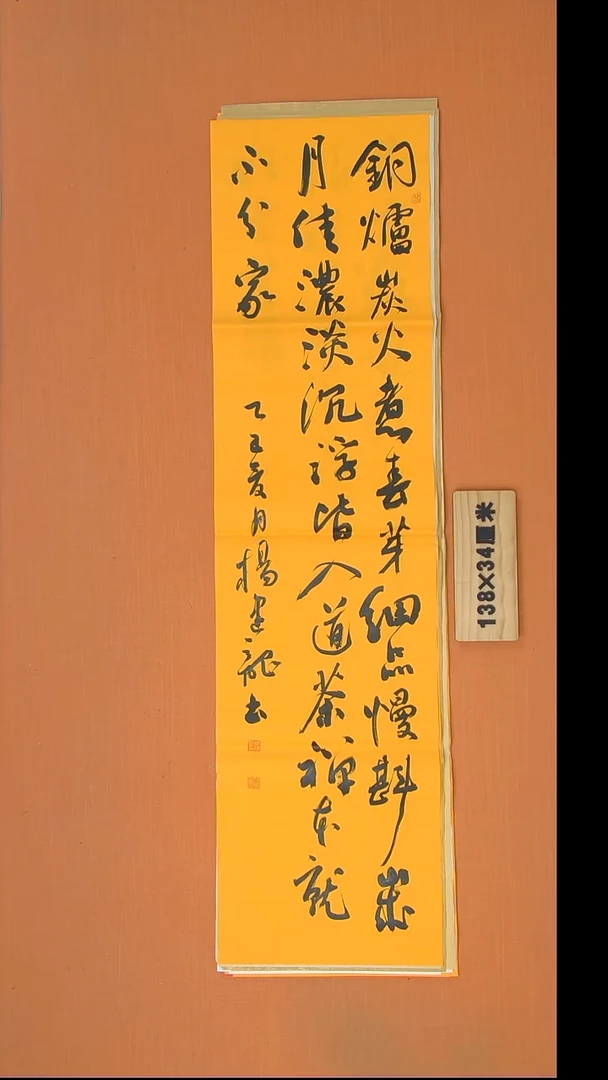 銅爐炭火煮春芽細品慢斟歲
月佳濃淡沉浮皆入道茶禪本就
不分家
乙巳夏月楊建龍书
138×34厘米